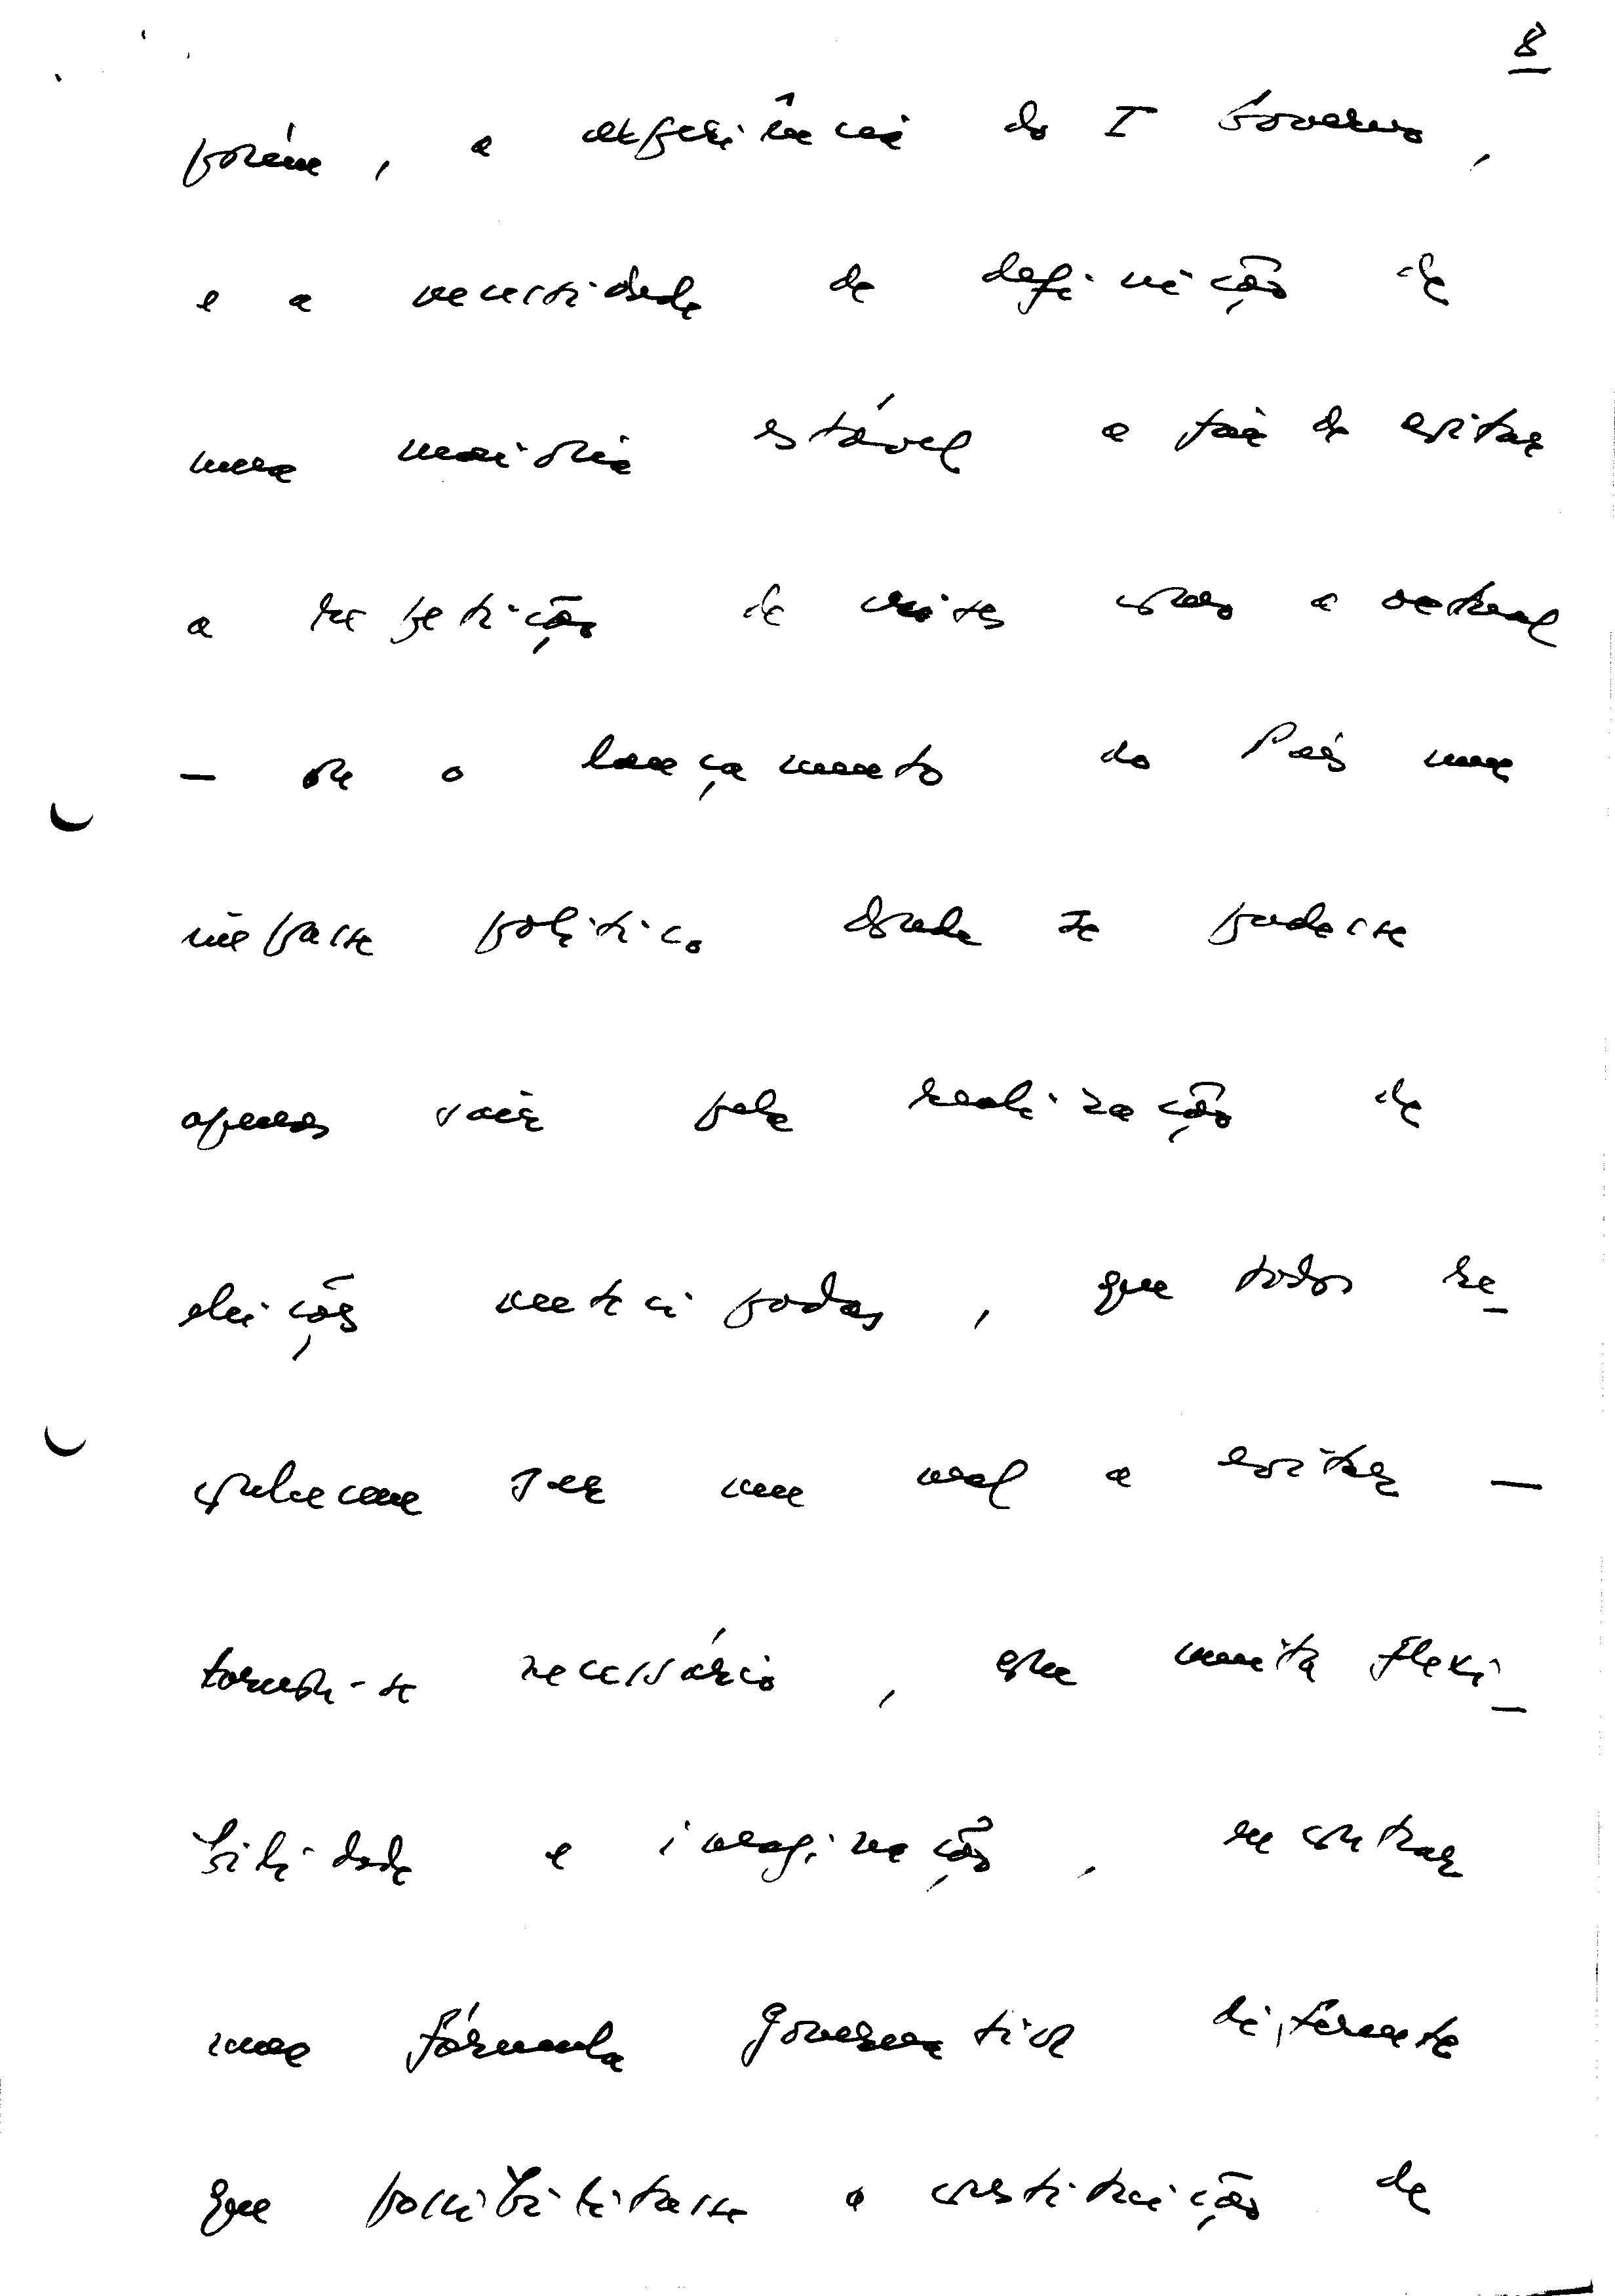 8
porém, a experiência do I Governo,
e a necessidade de definição de
uma maioria estável a fim de evitar
a repetição de crises como a actual
— ou o lançamento do País num
impasse político donde se pudesse
apenas sair pela realização de
eleições antecipadas, que todos re-
conhecem ser um mal a evitar —
tornou-se necessário, com muita flexi-
bilidade e imaginação, encontrar
uma fórmula governativa diferente
que possibilitasse a constituição de